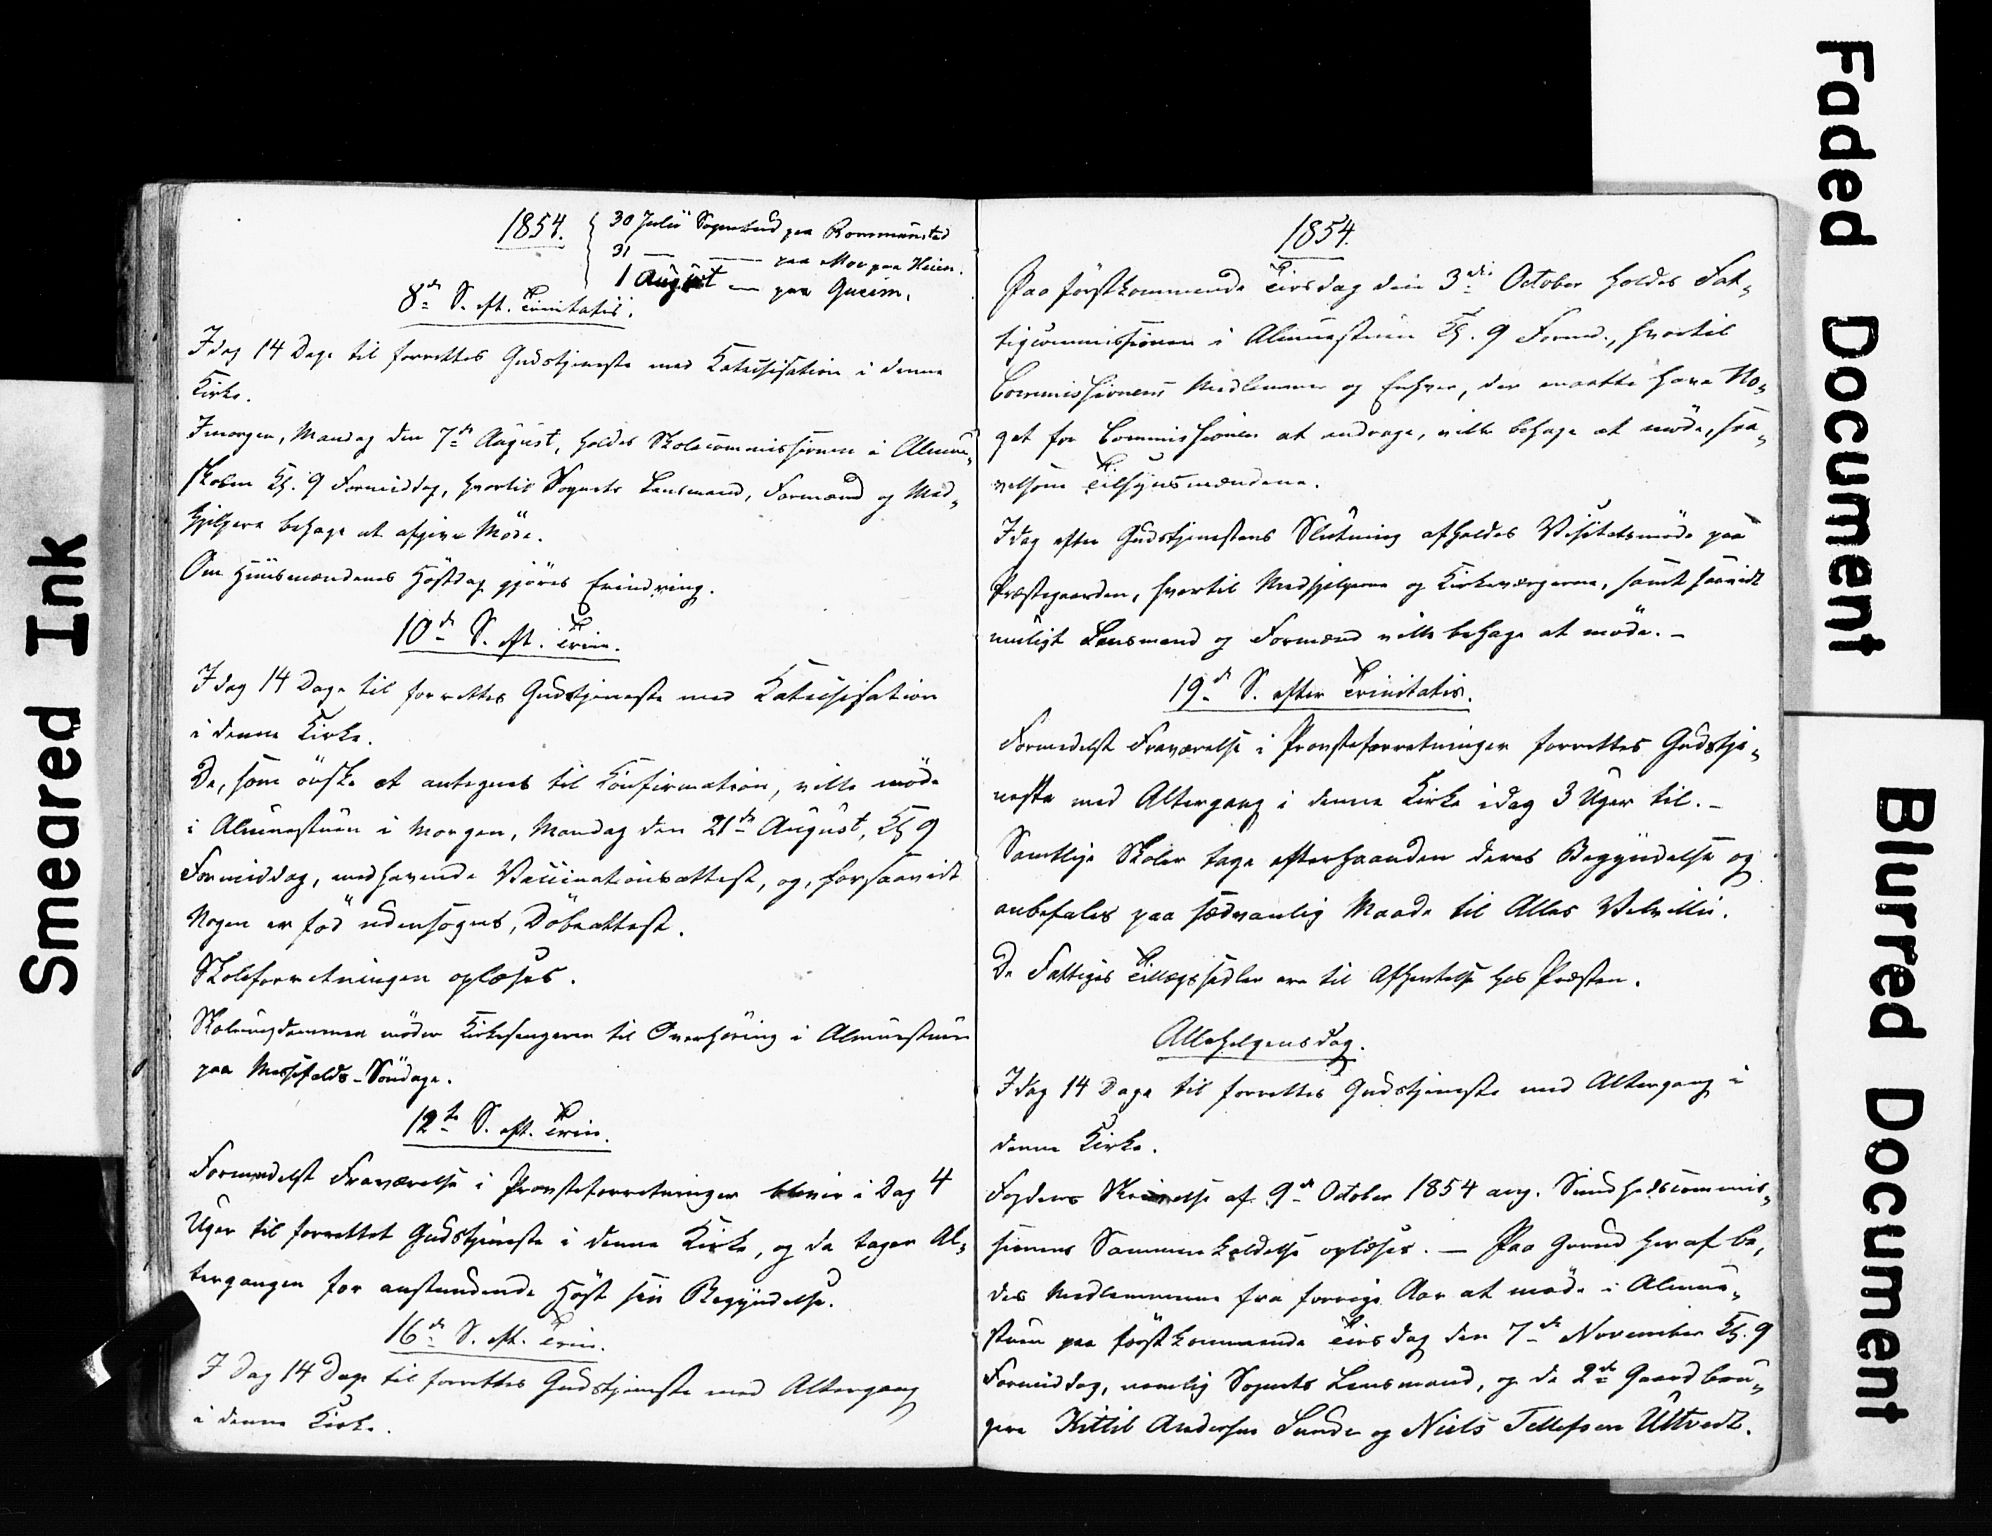 1854.
30 Julii Sognebud paa Rommunstad
31 — — paa Mo paa Heien.
1 August — paa Qveim.
8de S. eft. Trinitatis.
Idag 14 Dage til forrettes Gudstjeneste med Katechisation i denne
Kirke.
Imorgen, Mandag den 7de August, holdes Skolecommissionen i Almue-
skolen Kl. 9 Formiddag, hvortil Sognets Lensmand, Formænd og Med-
hjelpere behage at afgive Møde.
Om Huusmændenes Høstdag gjøres Erindring.
10de S. eft. Trin.
Idag 14 Dage til forrettes Gudstjeneste med Katechisation
i denne Kirke.
De, som ønske at antegnes til Confirmation, ville møde
i Almuestuen i Morgen, Mandag den 21de August, Kl 9
Formiddag, medhavende Vaccinationsattest, og, forsaavidt
Nogen er fød udensogns, Døbeattest.
Skoleforretningen oplæses.
Skoleungdommen møder Kirkesangeren til Overhøring i Almuestuen
paa Messefalds-Søndage.
12te S. eft. Trin.
Formedelst Fraværelse i Provsteforretninger bliver i Dag 4
Uger til forrettet Gudstjeneste i denne Kirke, og da tager Al-
tergangen for anstundende Høst sin Begyndelse.
16de S. eft. Trin.
I Dag 14 Dage til forrettes Gudstjeneste med Altergang
i denne Kirke.
1854.
Paa førstkommende Tirsdag den 3die October holdes Fat-
tigcommissionen i Almuestuen Kl. 9 Formd., hvortil
Commissionens Medlemmer og Enhver, der maatte have No-
get for Commissionen at andrage, ville behage at møde, saa-
velsom Tilsynsmændene.
Idag efter Gudstjenestens Slutning afholdes Visitatsmøde paa
Præstegaarden, hvortil Medhjelperne og Kirkeværgerne, samt saavidt
muligt Lensmand og Formænd ville behage at møde. —
19de S. efter Trinitatis.
Formedelst Fraværelse i Provsteforretninger forrettes Gudstje-
neste med Altergang i denne Kirke idag 3 Uger til. —
Samtlige Skoler tage efterhaanden deres Begyndelse og
anbefales paa sædvanlig Maade til Alles Velvillie.
De Fattiges Tillægssedler ere til Afhentelse hos Præsten.
Allehelgensdag.
Idag 14 Dage til forrettes Gudstjeneste med Altergang i
denne Kirke.
Fogdens Skrivelse af 9de October 1854 ang. Sundhedscommis-
sionens Sammenkaldelse oplæses. — Paa Grund heraf be-
des Medlemmerne fra forrige Aar at møde i Almue-
stuen paa førstkommende Tirsdag den 7de November Kl. 9
Formiddag, nemlig Sognets Lensmand, og de 2de Gaardbru-
gere Kittil Andersen Sunde og Niels Tellefsen Ustvedt.
Smeared Ink
Faded Document
Blurred Document